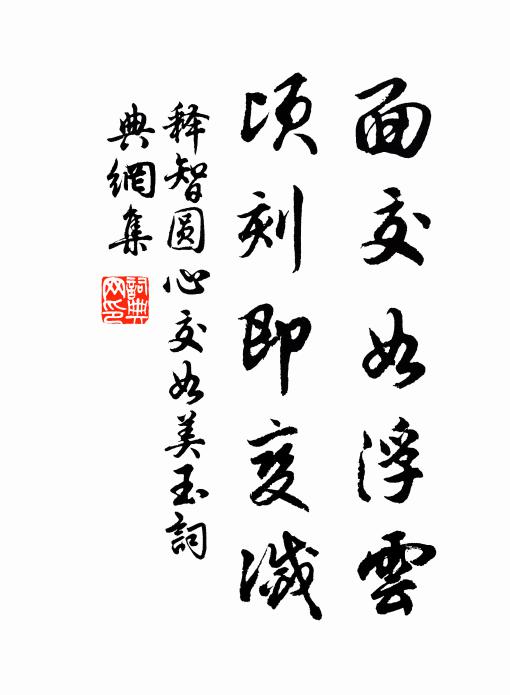 面交如浮雲
頃刻即变滅
释智圆心交如美玉詞
典網集
詞典网印